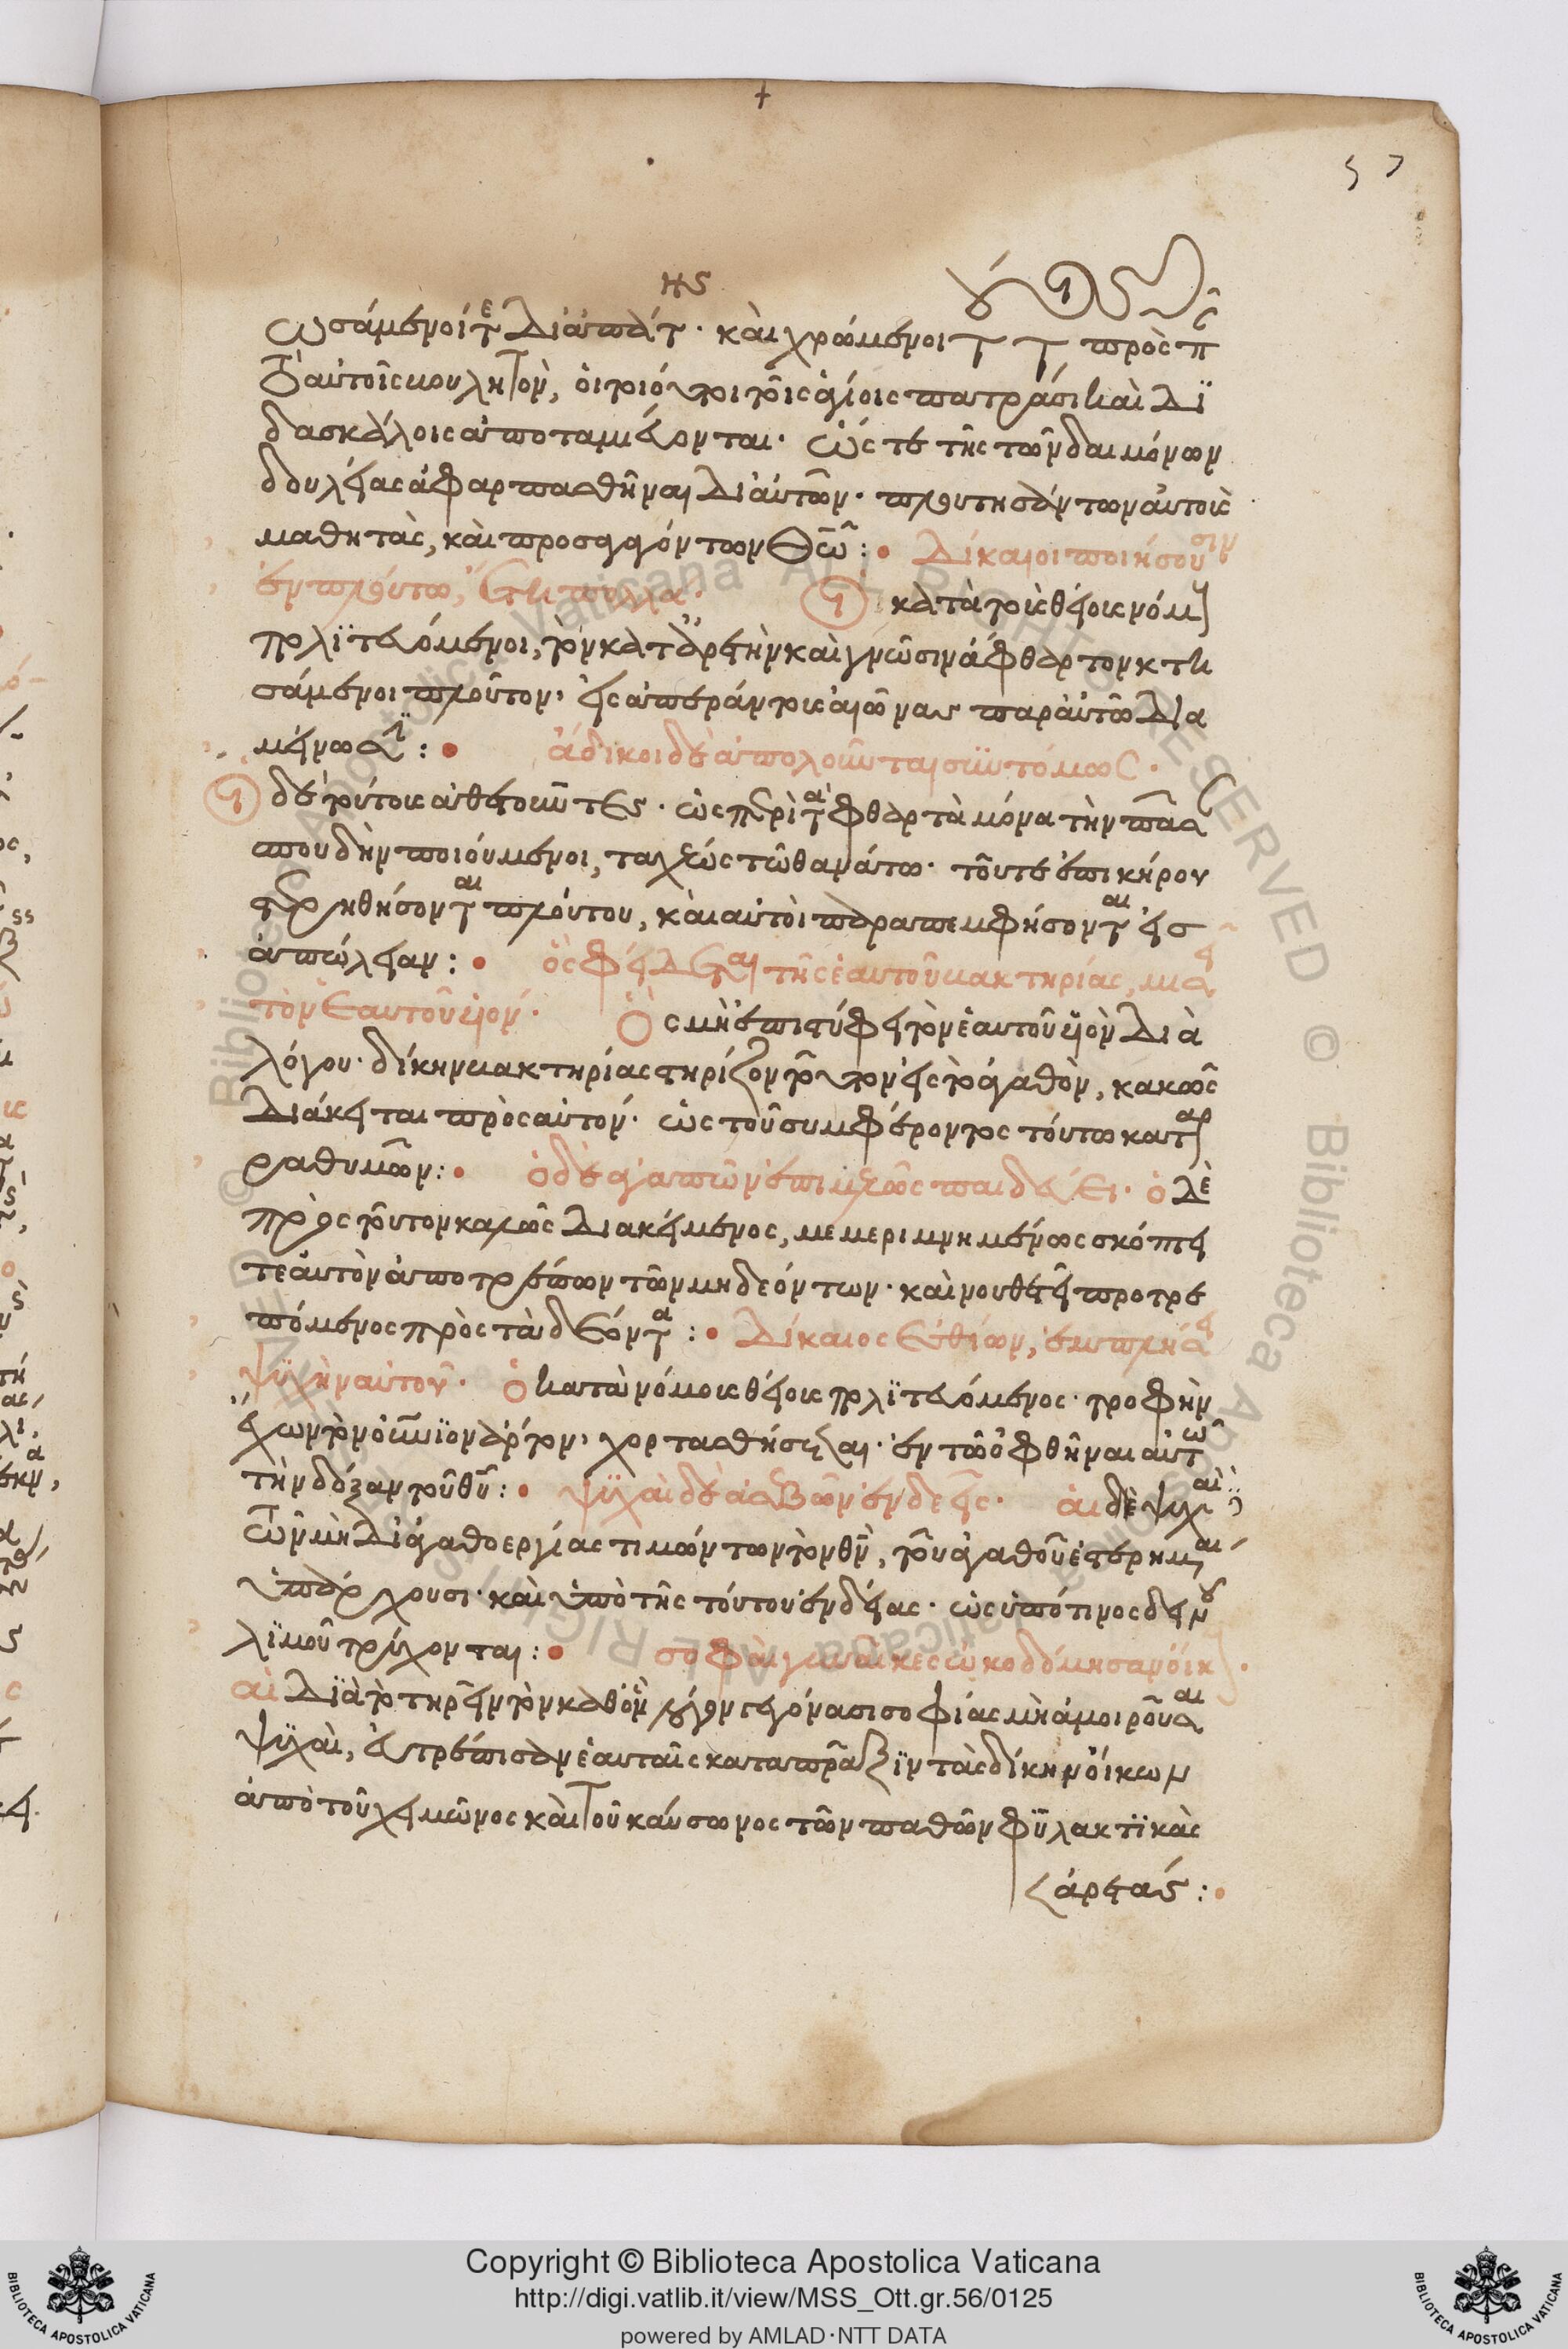 57
ωσάμενοί τε διὰ πάσης. καὶ χρώμενοι
αὐτοῖς
δασκάλοις ἀποταμιεύονται. ὥς τε τῆς τῶν δαιμόνων
δουλείας ἀφαρπασθῆναι δι' αὐτῶν. πλουτησάντων αὐτοὺς
μαθητὰς, καὶ προσαγόντων Θῶ: Δίκαιοι ποιήσουσιν
ἐν πλούτω, ἔτη πολλά. οἱ κατὰ τοὺς θείους νόμους
πολϊτευόμενοι, τὸν κατ' ἀρετὴν καὶ γνῶσιν ἄφθαρτον κτη
σάμενοι πλοῦτον, εἰς ἀπεράντους αἰῶνας παρ' αὐτῶ δια
μένωσϊ: ἄδικοι δὲ ἀπολοῦνται συντόμως.
οἱ δὲ τούτους ἀθετοῦντες. ὡς περὶ τὰ φθαρτὰ μόνα τὴν πᾶσαν
σπουδὴν ποιούμενοι, ταχέως τῶ θανάτω. τοῦτε ἐπικήρου
στερηθήσονται πλούτου, καὶ αὐτοὶ παραπεμφθήσονται εἰς
ἀπώλειαν: ὃς φείδεται τῆς ἑαυτοῦ βακτηρίας, μισεῖ
τὸν ἑαυτοῦ υἱόν. Ὁς μὴ ἐπιστύφει τὸν ἑαυτοῦ υἱὸν διὰ
λόγου. δίκην βακτηρίας στηρίζοντος τοῦτον εἰς τὸ ἀγαθὸν, κακῶς
διάκειται πρὸς αὐτόν. ὡς τοῦ συμφέροντος τούτω κατα
ραθυμῶν: ὁ δὲ ἀγαπῶν ἐπιμελῶς παιδεύει. ὁ δὲ
πρὸς τοῦτον καλῶς διακείμενος, μεμεριμνημένως σκόπτει
τε αὐτὸν ἀποτρέπων τῶν μὴ δεόντων. καὶ νουθετεῖ προτρε
πόμενος πρὸς τὰ δέοντα: Δίκαιος ἐσθίων, ἐμπιπλᾶ
ψϋχὴν αὐτοῦ. ὁ κατὰ νόμους θείους πολϊτευόμενος. τροφὴν
ἔχων τὸν οὐράνϊον ἄρτον, χορτασθήσεται. ἐν τῶ ὀφθῆναι αὐτῶ
τὴν δόξαν τοῦ θῦ: ψϋχαὶ δὲ ἀσεβῶν ἐνδεεῖς. αἱ δὲ ψυχαὶ
τῶν μὴ δι' ἀγαθοεργίας τιμώντων τὸν θν, τοῦ ἀγαθοῦ ἐστερημέναι
ὑπάρχουσι. καὶ ὑπὸ τῆς τούτου ἐνδείας. ὡς ὑπό τινος δεινοῦ
λϊμοῦ τρύχονται: σοφαὶ γυναῖκες ὠκοδόμησαν οἴκους.
αἱ διὰ τὸ τηρεῖν τὸν κατὰ θν λόγον γεγόνασι σοφίας μὴ ἀμοιροῦσαι
ψϋχαὶ, εὐτρέπισαν ἑαυταῖς κατὰ πρᾶξϊν τὰς δίκην οἴκων
ἀπὸ τοῦ χειμῶνος καὶ τοῦ καύσωνος τῶν παθῶν φϋλακτϊκὰς
ἀρετάς:
Copyright © Biblioteca Apostolica Vaticana
http://digi.vatlib.it/view/MSS_Ott.gr.56/0125
powered by AMLAD·NTT DATA